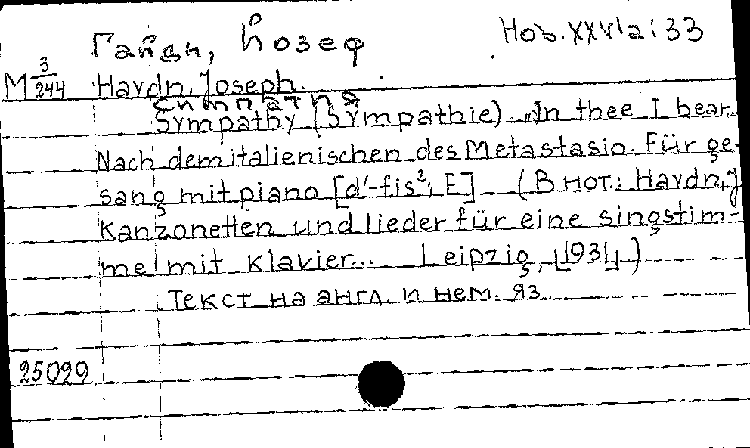 Гайдн, Йозеф
Hob. XXVIa:33
M 3/244 Haydn, Joseph.
Симпатия
Sympathy (Sympathie) „In thee I bear..
Nach dem italienischen des Metastasio. Für ge-
sang mit piano [d'-fis², E] (В нот.: Haydn, J.
Kanzonetten und lieder für eine singstim-
me mit Klavier... Leipzig, [1931])
Текст на англ. и нем. яз.
25099